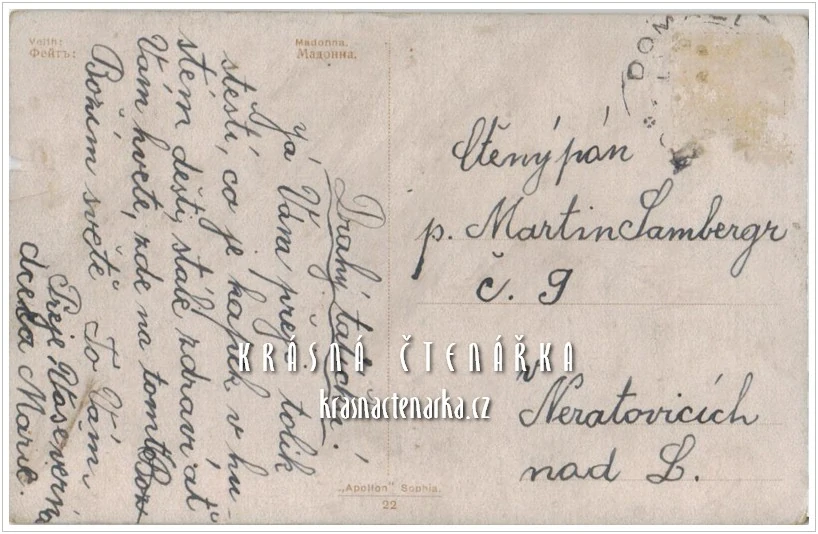 Veith:
Фейтъ:
Madonna.
Мадонна.
Drahý tatíčku!
Já Vám přeji tolik
štěstí, co je kapek v hu-
stém dešti, stálé zdraví ať
Vám kvete, zde na tomto Bož
Božím světě To Vám
Přeje Vaše věrná
dcera Marie.
DOM
Ctěný pán
p. Martin Lambergr
č. 9
v
Neratovicích
nad L.
KRÁSNÁ ČTENÁŘKA
krasnactenarka.cz
„Apollon" Sophia.
22